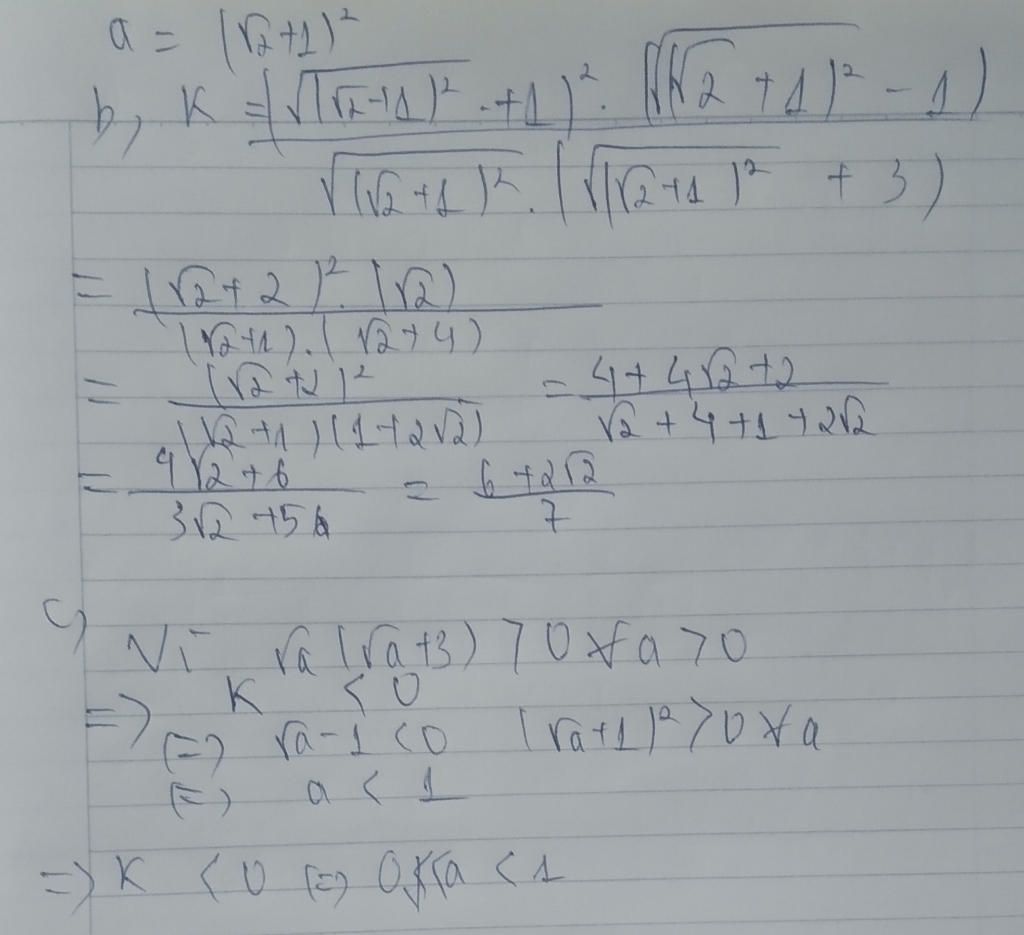 a = (√2+1)²
b, K = (√(√2+1)² + 1)² . (√(√2+1)² - 1) / √(√2+1)² . (√(√2+1)² + 3)
= (√2+2)² . (√2) / (√2+1).(√2+4)
= (√2+2)² / (√2+1)(1+2√2) = 4+4√2+2 / √2+4+1+2√2
= 4√2+6 / 3√2+5 = 6+2√2 / 7
c,
Vì √a(√a+3) > 0 ∀a > 0
=> K < 0
(=) √a-1 < 0 (√a+1)² > 0 ∀a
(=) a < 1
=> K < 0 (=) 0 < a < 1